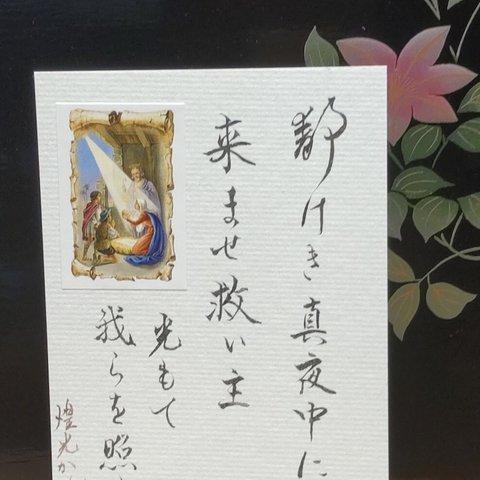 静けき真夜中に
来ませ救い主
光もて
我らを照
煌光か